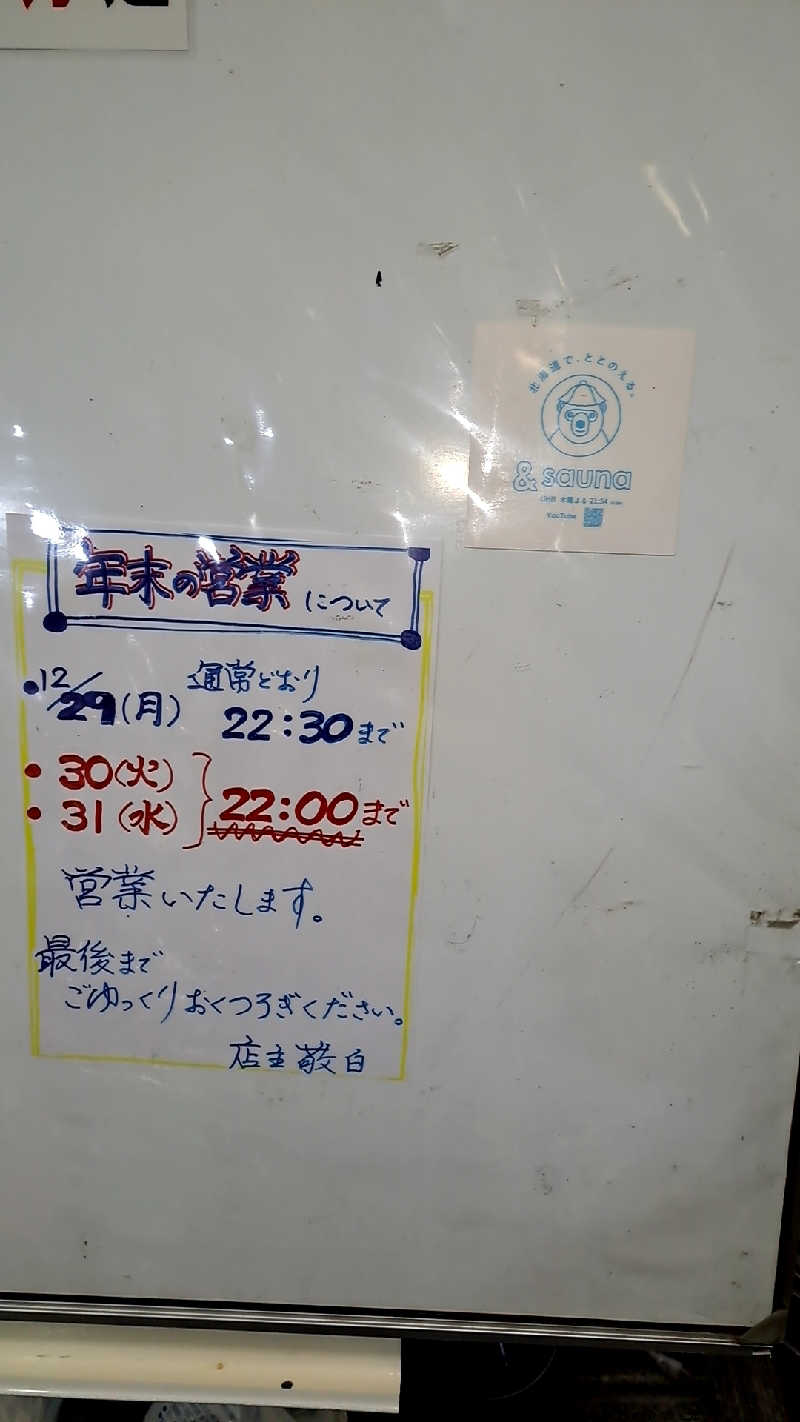 北海道で、ととのえる。
&sauna
UHB 水曜よる 21:54
YouTube
年末の営業について
・12/29(月) 通常どおり
22:30まで
・30(火)
・31(水)
22:00まで
営業いたします。
最後まで
ごゆっくりおくつろぎください。
店主敬白